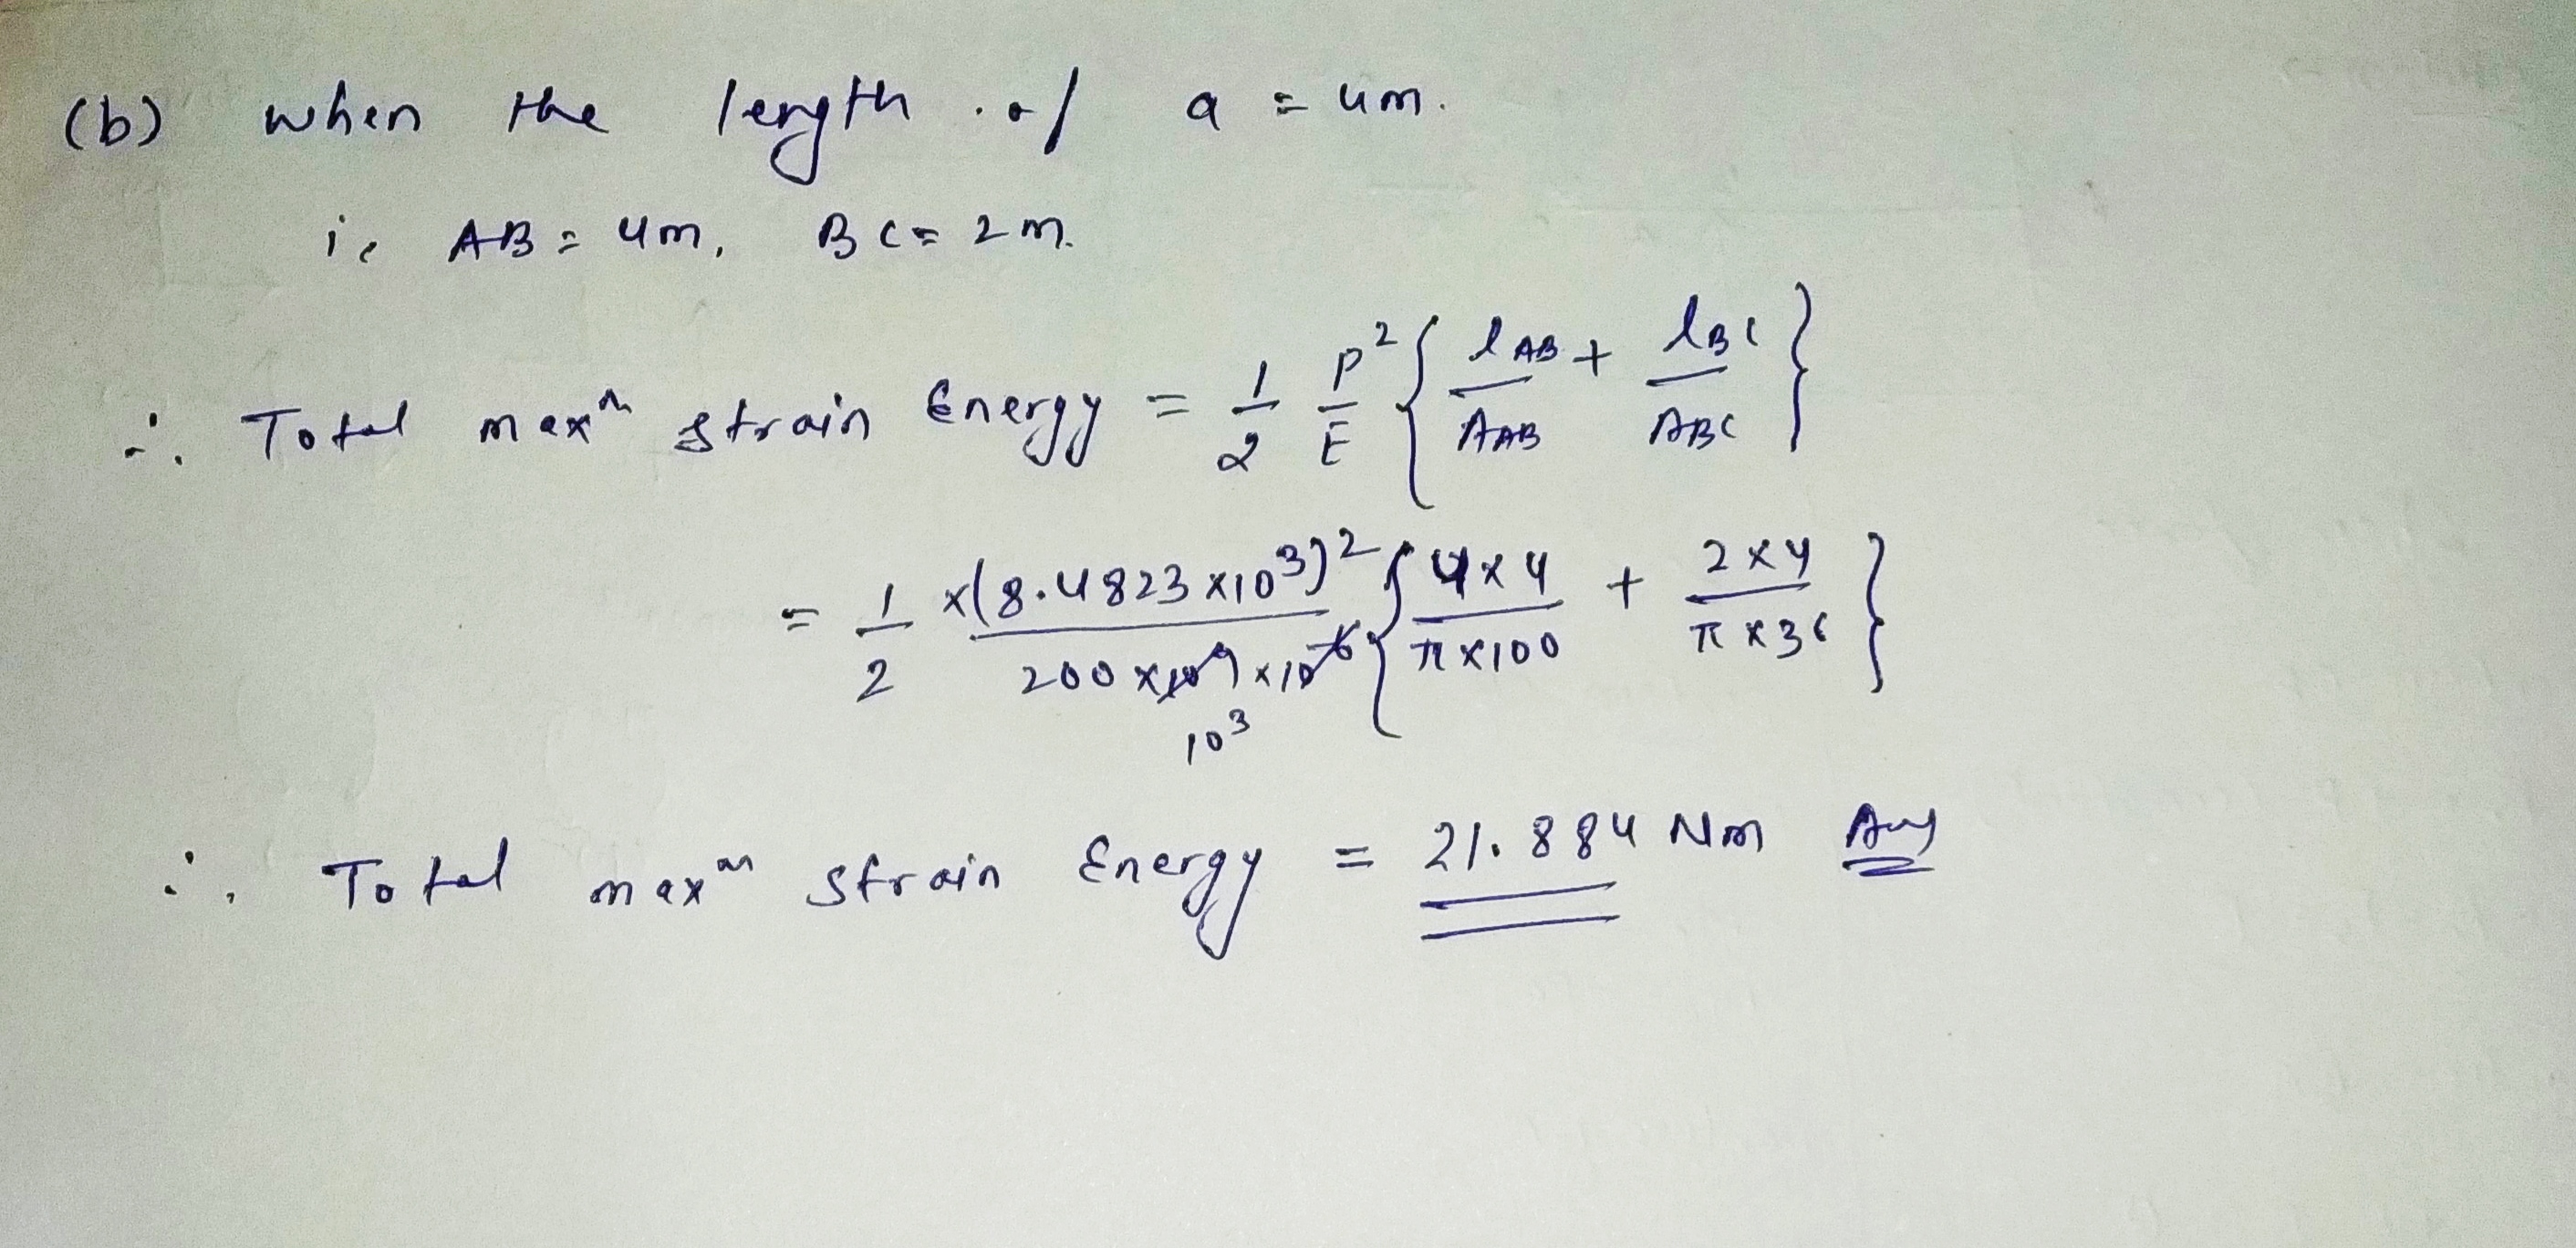 (b) when the length of a = 4m.
ie AB = 4m, BC = 2m.
∴ Total maxᵐ strain Energy = 1/2 P²/E { lAB/AAB + lBC/ABC }
= 1/2 × (8.4823 × 10³)² / 200 × 10⁹ × 10⁻⁶ { 4×4/π×100 + 2×4/π×36 }
10³
∴ Total maxᵐ strain Energy = 21.884 Nm Ans